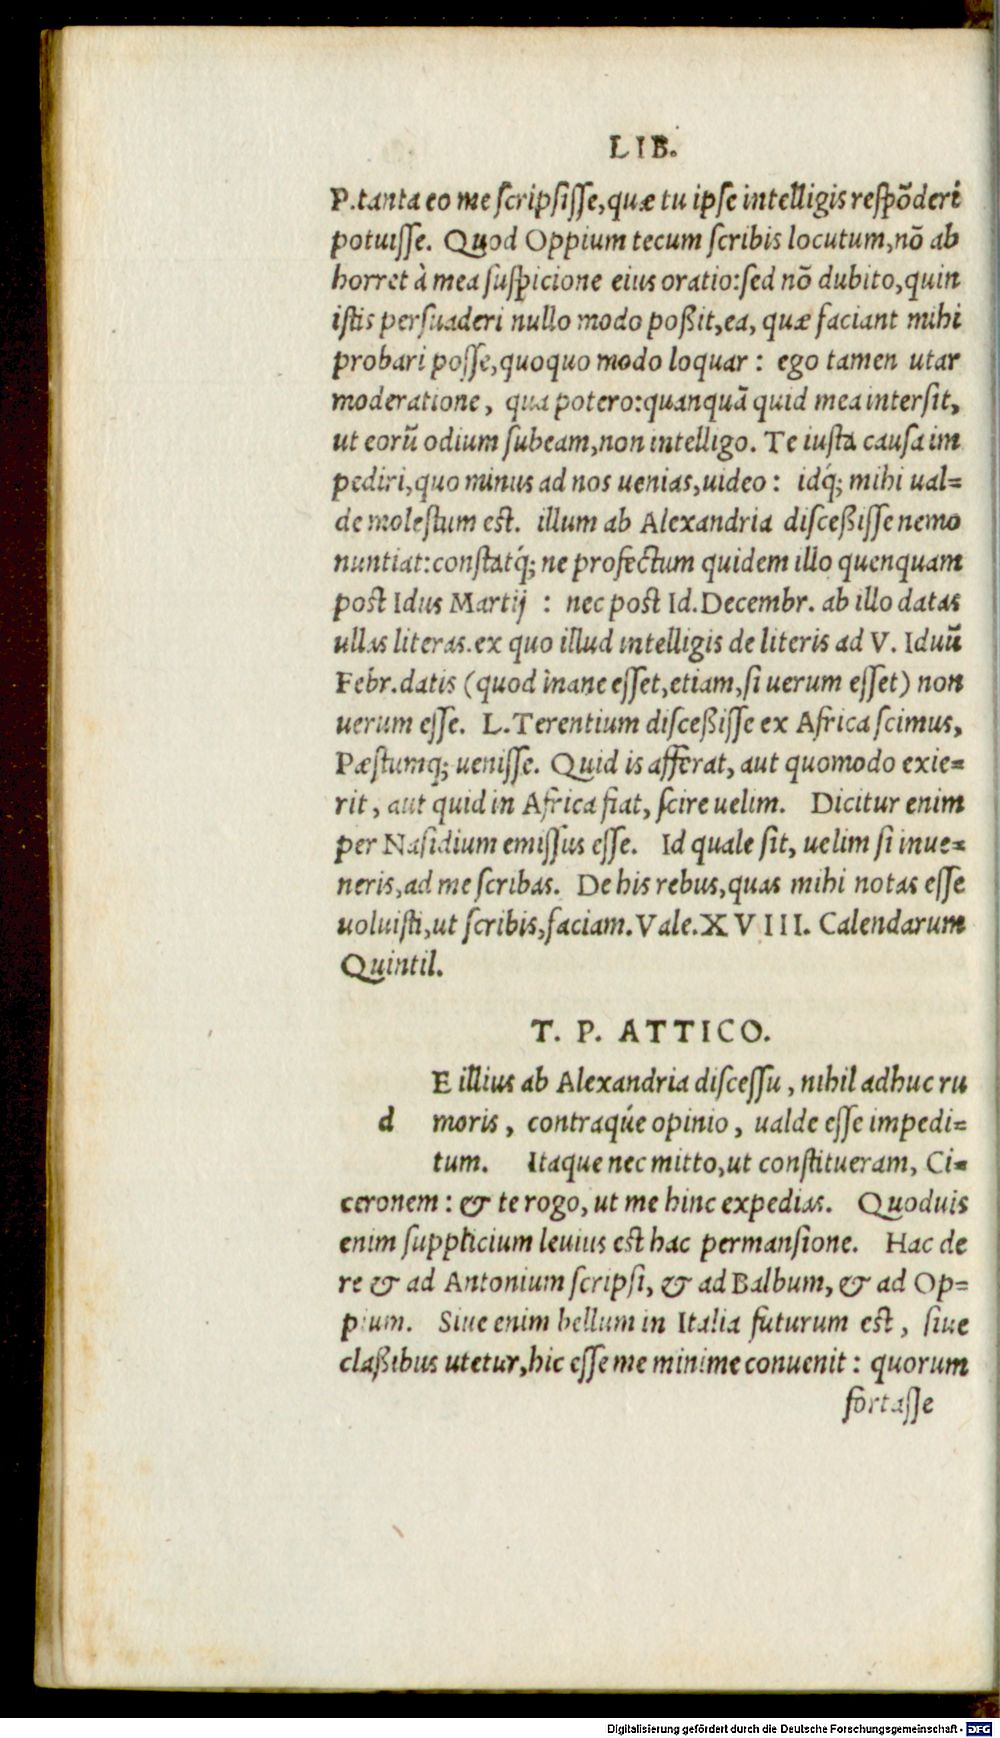 LIB.
P. tanta eo me scripsisse, quæ tu ipse intelligis respõderi
potuisse. Quod Oppium tecum scribis locutum, nõ ab
horret à mea suspicione eius oratio: sed nõ dubito, quin
istis persuaderi nullo modo poßit, ea, quæ faciant mihi
probari posse, quoquo modo loquar : ego tamen utar
moderatione, qua potero: quanquã quid mea intersit,
ut eorũ odium subeam, non intelligo. Te iusta causa im
pediri, quo minus ad nos uenias, uideo : idq́; mihi ual=
de molestum est. illum ab Alexandria disceßisse nemo
nuntiat: constatq́; ne profectum quidem illo quenquam
post Idus Martij : nec post Id. Decembr. ab illo datas
ullas literas. ex quo illud intelligis de literis ad V. Iduũ
Febr. datis (quod inane esset, etiam, si uerum esset) non
uerum esse. L. Terentium disceßisse ex Africa scimus,
Pæstumq́; uenisse. Quid is afferat, aut quomodo exie=
rit, aut quid in Africa fiat, scire uelim. Dicitur enim
per Nasidium emissus esse. Id quale sit, uelim si inue=
neris, ad me scribas. De his rebus, quas mihi notas esse
uoluisti, ut scribis, faciam. Vale. XVIII. Calendarum
Quintil.
T. P. ATTICO.
E illius ab Alexandria discessu, nihil adhuc ru
d moris, contraqúe opinio, ualde esse impedi=
tum. Itaque nec mitto, ut constitueram, Ci=
ceronem : & te rogo, ut me hinc expedias. Quoduis
enim supplicium leuius est hac permansione. Hac de
re & ad Antonium scripsi, & ad Balbum, & ad Op=
pium. Siue enim bellum in Italia futurum est, siue
claßibus utetur, hic esse me minime conuenit : quorum
fortasse
Digitalisierung gefördert durch die Deutsche Forschungsgemeinschaft - DFG